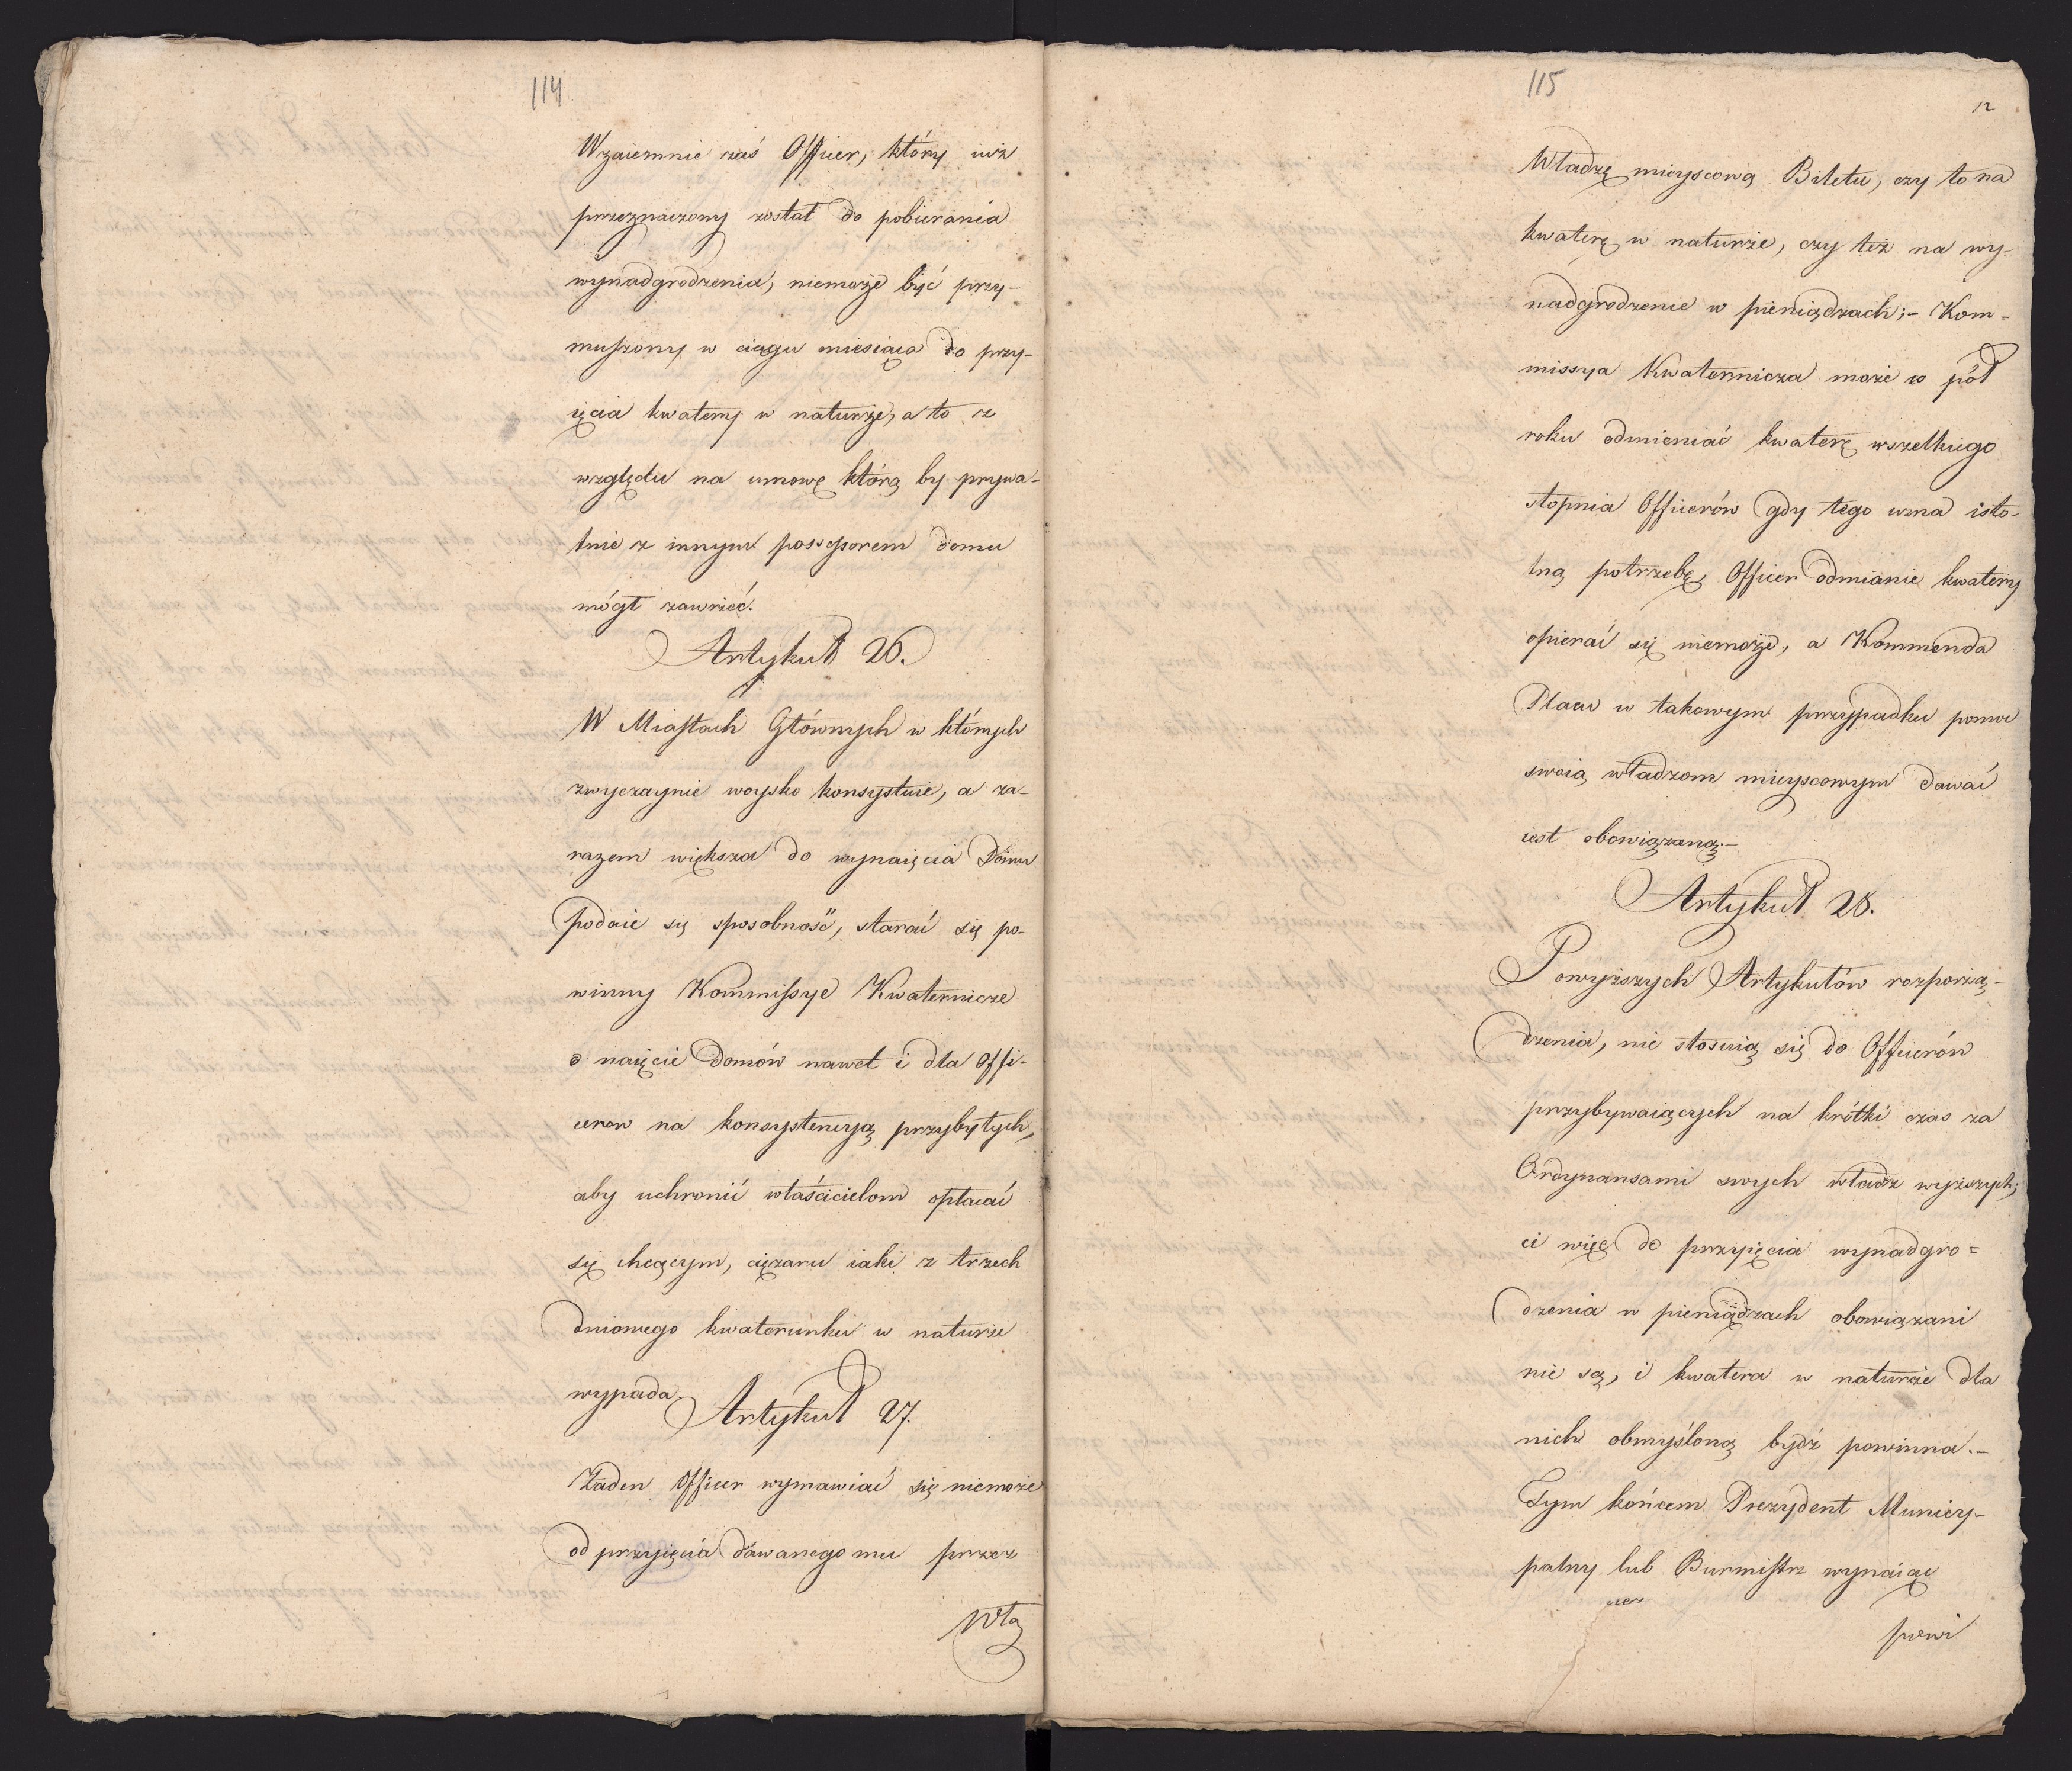 114
Wzaiemnie zaś Officer, który iuż
przeznaczony został do pobierania
wynadgrodzenia, niemoże być przy-
muszony w ciągu miesiąca do przy-
ięcia kwatery w naturze, a to z
względu na umowę którą by prywa-
tnie z innym possessorem domu
mógł zawrzeć.
Artykuł 26.
W Miastach Głównych w których
zwyczaynie woysko konsystuie, a za-
razem większa do wynaięcia Domu
podaie się sposobność, starać się po-
winny Kommissye Kwaternicze
o naięcie Domów nawet i dla Offi-
cerow na konsystencyą przybyłych,
aby uchronić właścicielom opłacać
się chcącym, ciężaru iaki z trzech
dniowego kwaterunku w naturze
wypada.
Artykuł 27.
Żaden Officer wymawiać się niemoże
od przyięcia dawanego mu przez
Wła
115
12
Władzę mieyscową Biletu, czy to na
kwaterę w naturze, czy też na wy-
nadgrodzenie w pieniądzach;- Kom-
missya Kwaternicza może co pół
roku odmieniać kwaterę wszelkiego
stopnia Officerów gdy tego uzna isto-
tną potrzebę, Officer odmianie kwatery
opierać się niemoże, a Kommenda
Placu w takowym przypadku pomoc
swoią władzom mieyscowym dawać
iest obowiązaną.-
Artykuł 28.
Powyższych Artykułów rozporzą-
dzenia, nie stosuią się do Officerów
przybywaiących na krótki czas za
Ordynansami swych władz wyższych;
ci więc do przyięcia wynadgro-
dzenia w pieniądzach obowiązani
nie są, i kwatera w naturze dla
nich obmysloną bydź powinna.-
Tym końcem Prezydent Municy-
palny lub Burmistrz wynaiąć
powi